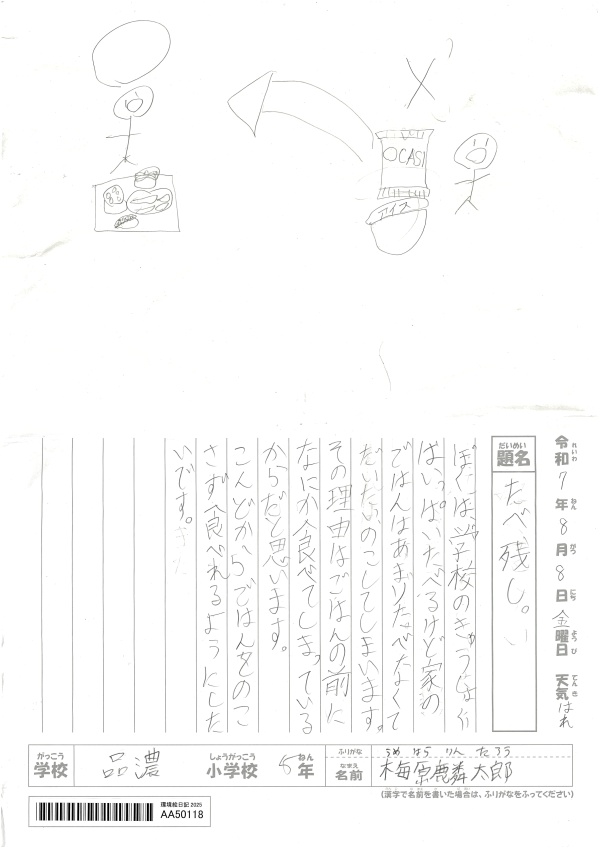 OCASI
アイス
令和7年8月8日金曜日 天気はれ
れいわ ねん がつ にち ようび てんき
だいめい
題名
たべ残し。
ぼくは、学校のきゅうしょく
はいっぱいたべるけど家の
ごはんはあまりたべたなくて
だいたいのこしてしまいます。
その理由はごはんの前に
なにか食べてしまっている
からだと思います。
こんどからごはんをのこ
さず食べれるようにした
いです。
がっこう
学校
品濃
しょうがっこう
小学校
ねん
年
ふりがな
うめ はら りん たろう
なまえ
名前
梅原麟太郎
(漢字で名前を書いた場合は、ふりがなをふってください)
環境絵日記 2025
AA50118